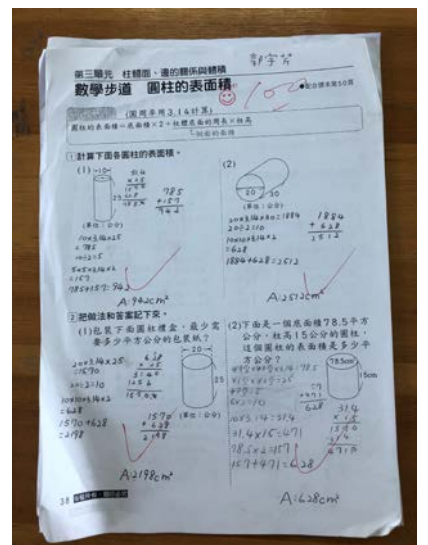 第三單元 柱體面、邊的關係與體積
數學步道 圓柱的表面積
100
●配合課本第50頁
(圓周率用3.14計算)
圓柱的表面積=底面積×2+柱體底面的周長×柱高
側面的面積
1 計算下面各圓柱的表面積。
(1)
10
25
(單位:公分)
785
+157
942
10×3.14×25
=785
10÷2=5
5×5×3.14×2
=157
785+157=942
A:942cm²
(2)
20
30
(單位:公分)
20×3.14×30=1884
20÷2=10
10×10×3.14×2
=628
1884+628=2512
1884
+ 628
2512
A:2512cm²
2 把做法和答案記下來。
(1)包裝下面圓柱禮盒,最少需
要多少平方公分的包裝紙?
20
25
(單位:公分)
20×3.14×25
=1570
20÷2=10
10×10×3.14×2
=628
1570+628
=2198
1570
+ 628
2198
A:2198cm²
(2)下面是一個底面積78.5平方
公分,柱高15公分的圓柱,
這個圓柱的表面積是多少平
方公分?
78.5cm²
15cm
5×2=10
10×3.14=31.4
31.4×15=471
78.5×2=157
157+471=628
31.4
× 15
1570
314
4710
A:628cm²
38